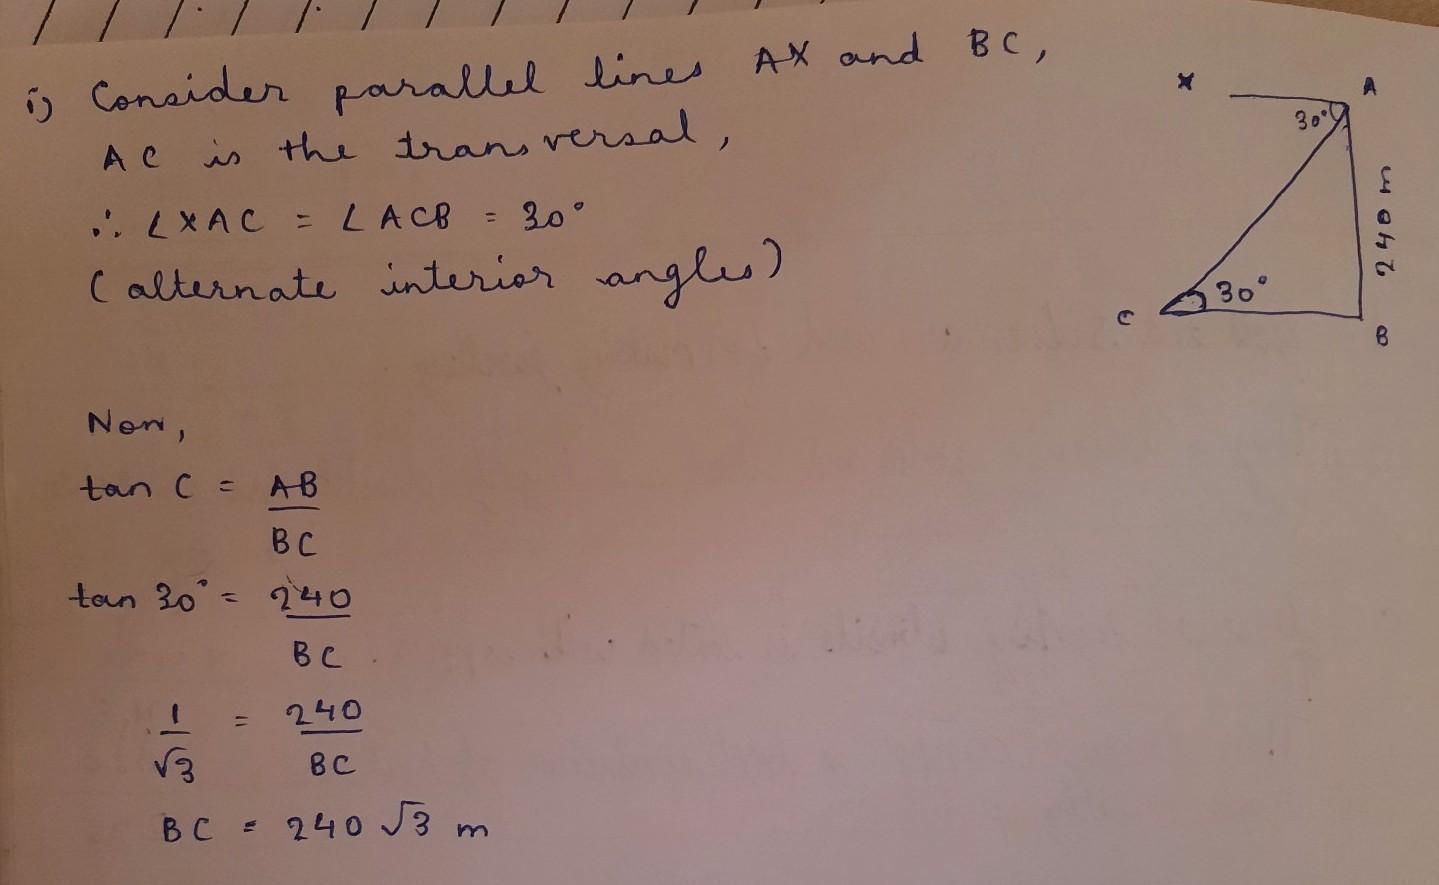 i) Consider parallel lines AX and BC,
AC is the transversal,
∴ ∠XAC = ∠ACB = 30°
(alternate interior angles)
X A
30°
240 m
30°
C
B
Now,
tan C = AB/BC
tan 30° = 240/BC
1/√3 = 240/BC
BC = 240 √3 m